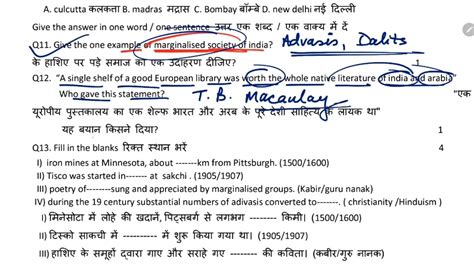 A. culcutta कलकता B. madras मद्रास C. Bombay बॉम्बे D. new delhi नई दिल्ली
Give the answer in one word / one sentence उत्तर एक शब्द / एक वाक्य में दें
Q11. Give the one example of marginalised society of india? Advasis, Dalits
के हाशिए पर पड़े समाज का एक उदाहरण दीजिए? 1
Q12. "A single shelf of a good European library was worth the whole native literature of india and arabia"
Who gave this statement? T. B. Macaulay
यूरोपीय पुस्तकालय का एक शेल्फ भारत और अरब के पूरे देशी साहित्य के लायक था"
यह बयान किसने दिया? 1
Q13. Fill in the blanks रिक्त स्थान भरें 4
I) iron mines at Minnesota, about -------km from Pittsburgh. (1500/1600)
II) Tisco was started in------- at sakchi . (1905/1907)
III) poetry of--------sung and appreciated by marginalised groups. (Kabir/guru nanak)
IV) during the 19 century substantial numbers of advasis converted to-------. ( christianity /Hinduism )
I) मिनेसोटा में लोहे की खदानें, पिट्सबर्ग से लगभग -------- किमी। (1500/1600)
II) टिस्को साकची में ---------- में शुरू किया गया था। (1905/1907)
III) हाशिए के समूहों द्वारा गाए और सराहे गए ------- की कविता। (कबीर/गुरु नानक)